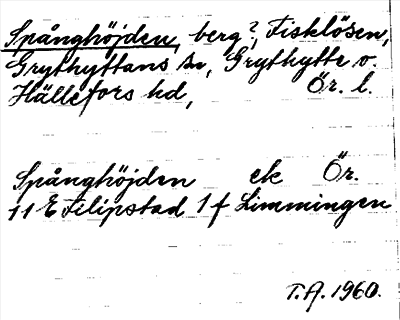 Spånghöjden, berg?, Fisklösen,
Grythyttans sn, Grythytte o.
Hällefors hd, Ör. l.
Spånghöjden ek Ör.
11 E Filipstad 1 f Limmingen
T.A. 1960.